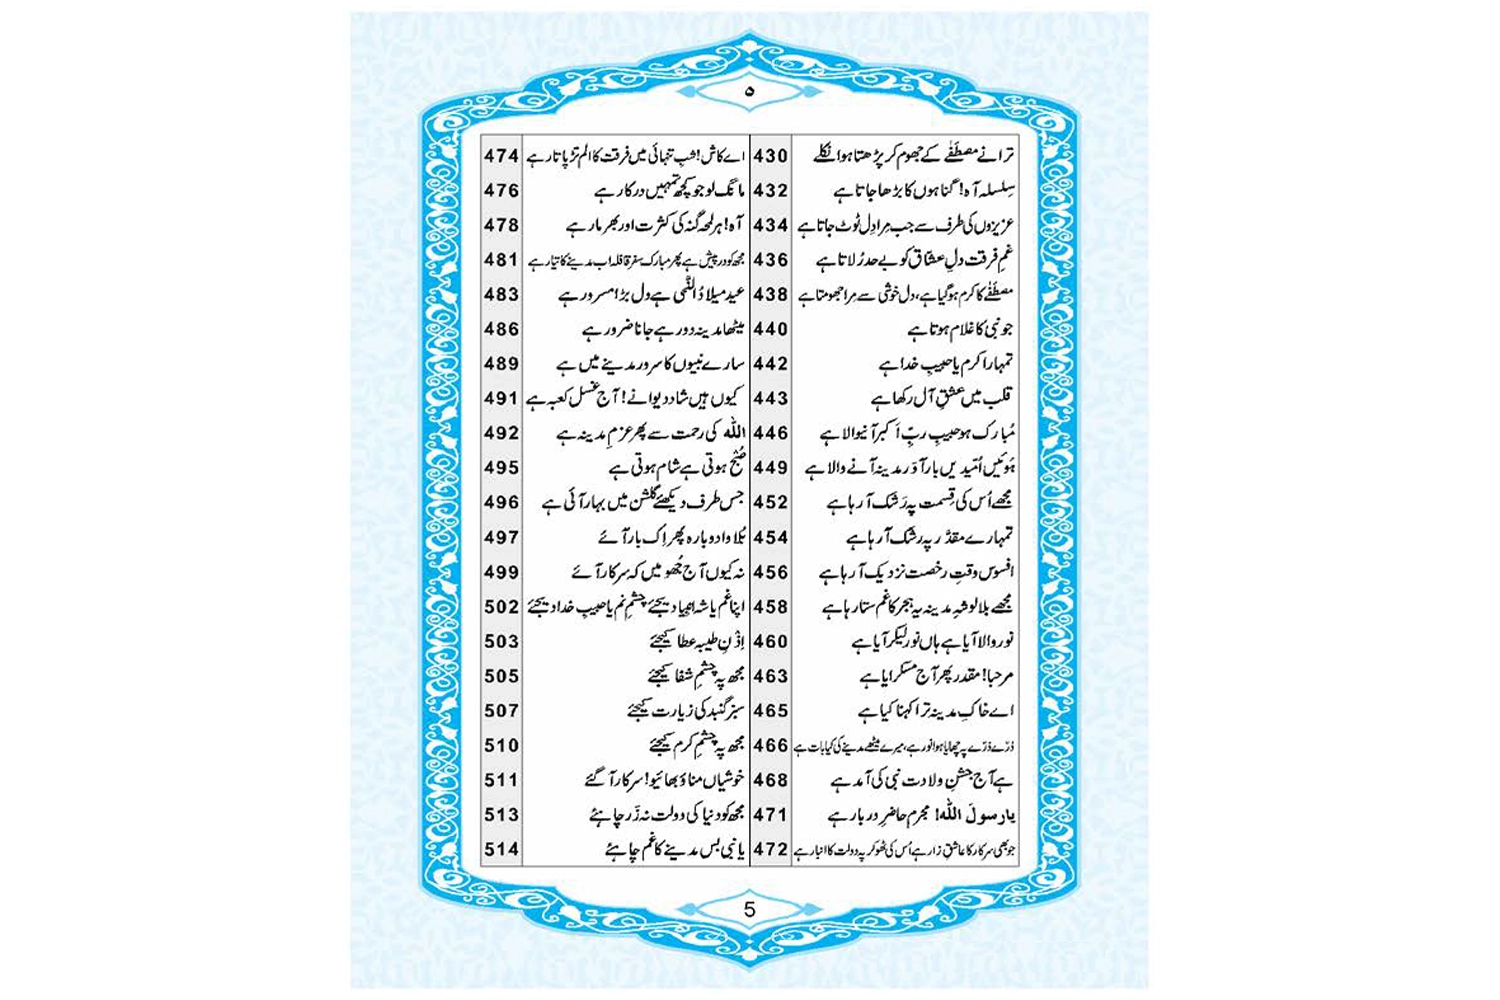 ۵
ترانے مصطَفٰے کے جھوم کر پڑھتا ہوا نکلے 430
سِلسلہ آہ! گناہوں کا بڑھا جاتا ہے 432
عزیزوں کی طرف سے جب مِرا دِل ٹوٹ جاتا ہے 434
غمِ فرقت دلِ عشّاق کو بے حد رُلاتا ہے 436
مصطَفٰے کا کرم ہو گیا ہے، دل خوشی سے مِرا جھومتا ہے 438
جو نبی کا غلام ہوتا ہے 440
تمہارا کرم یا حبیبِ خدا ہے 442
قلب میں عشقِ آل رکھا ہے 443
مُبارک ہو حبیبِ ربِّ اَکبر آنیوالا ہے 446
ہُوئیں اُمّیدیں بار آوَر مدینہ آنے والا ہے 449
مجھے اُس کی قِسمت پہ رَشک آ رہا ہے 452
تمہارے مقدّر پہ رشک آ رہا ہے 454
افسوس وقتِ رخصت نزدیک آ رہا ہے 456
مجھے بلا لو شہِ مدینہ یہ ہجر کا غم ستا رہا ہے 458
نور والا آیا ہے ہاں نور لیکر آیا ہے 460
مرحبا! مقدر پھر آج مسکرایا ہے 463
اے خاکِ مدینہ ترا کہنا کیا ہے 465
ذرّے ذرّے پہ چھایا ہوا نور ہے، میرے میٹھے مدینے کی کیا بات ہے 466
ہے آج جشنِ ولادت نبی کی آمد ہے 468
یا رسولَ اللّٰہ! مجرم حاضرِ دربار ہے 471
جو بھی سرکار کا عاشقِ زار ہے اُس کی ٹھوکر پہ دولت کا انبار ہے 472
اے کاش! شبِ تنہائی میں فرقت کا الم تڑپاتا رہے 474
مانگ لو جو کچھ تمہیں درکار ہے 476
آہ! ہر لمحہ گنہ کی کثرت اور بھرمار ہے 478
مجھ کو درپیش ہے پھر مبارک سفر قافلہ اب مدینے کا تیّار ہے 481
عیدِ میلادُ النَّبی ہے دل بڑا مسرور ہے 483
میٹھا مدینہ دور ہے جانا ضرور ہے 486
سارے نبیوں کا سرور مدینے میں ہے 489
کیوں ہیں شاد دیوانے! آج غسل کعبہ ہے 491
اللّٰہ کی رحمت سے پھر عزمِ مدینہ ہے 492
صُبْح ہوتی ہے شام ہوتی ہے 495
جس طرف دیکھئے گلشن میں بہار آئی ہے 496
بُلاوا دوبارہ پھر اِک بار آئے 497
نہ کیوں آج جُھومیں کہ سرکار آئے 499
اپنا غم یا شہِ انبیا دیجئے چشمِ نم یا حبیبِ خدا دیجئے 502
اِذْنِ طیبہ عطا کیجئے 503
مجھ پہ چشمِ شفا کیجئے 505
سبز گنبد کی زیارت کیجئے 507
مجھ پہ چشمِ کرم کیجئے 510
خوشیاں مناؤ بھائیو! سرکار آگئے 511
مجھ کو دنیا کی دولت نہ زَر چاہئے 513
یا نبی بس مدینے کا غم چاہئے 514
5